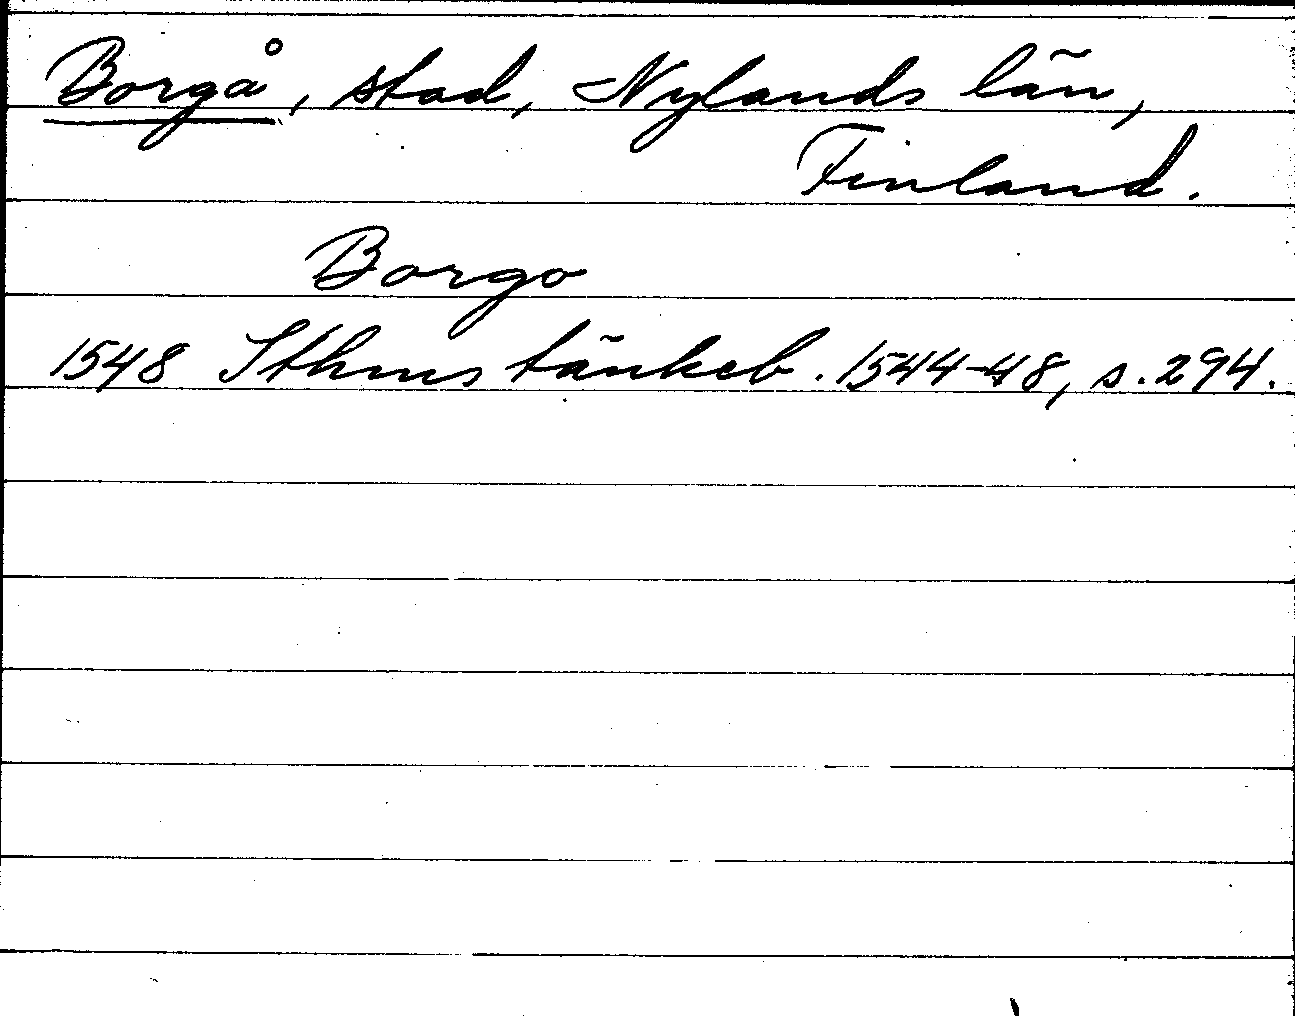 Borgå, stad, Nylands län,
Finland.
Borgo
1548 Sthms tänkeb. 1544-48, s. 294.